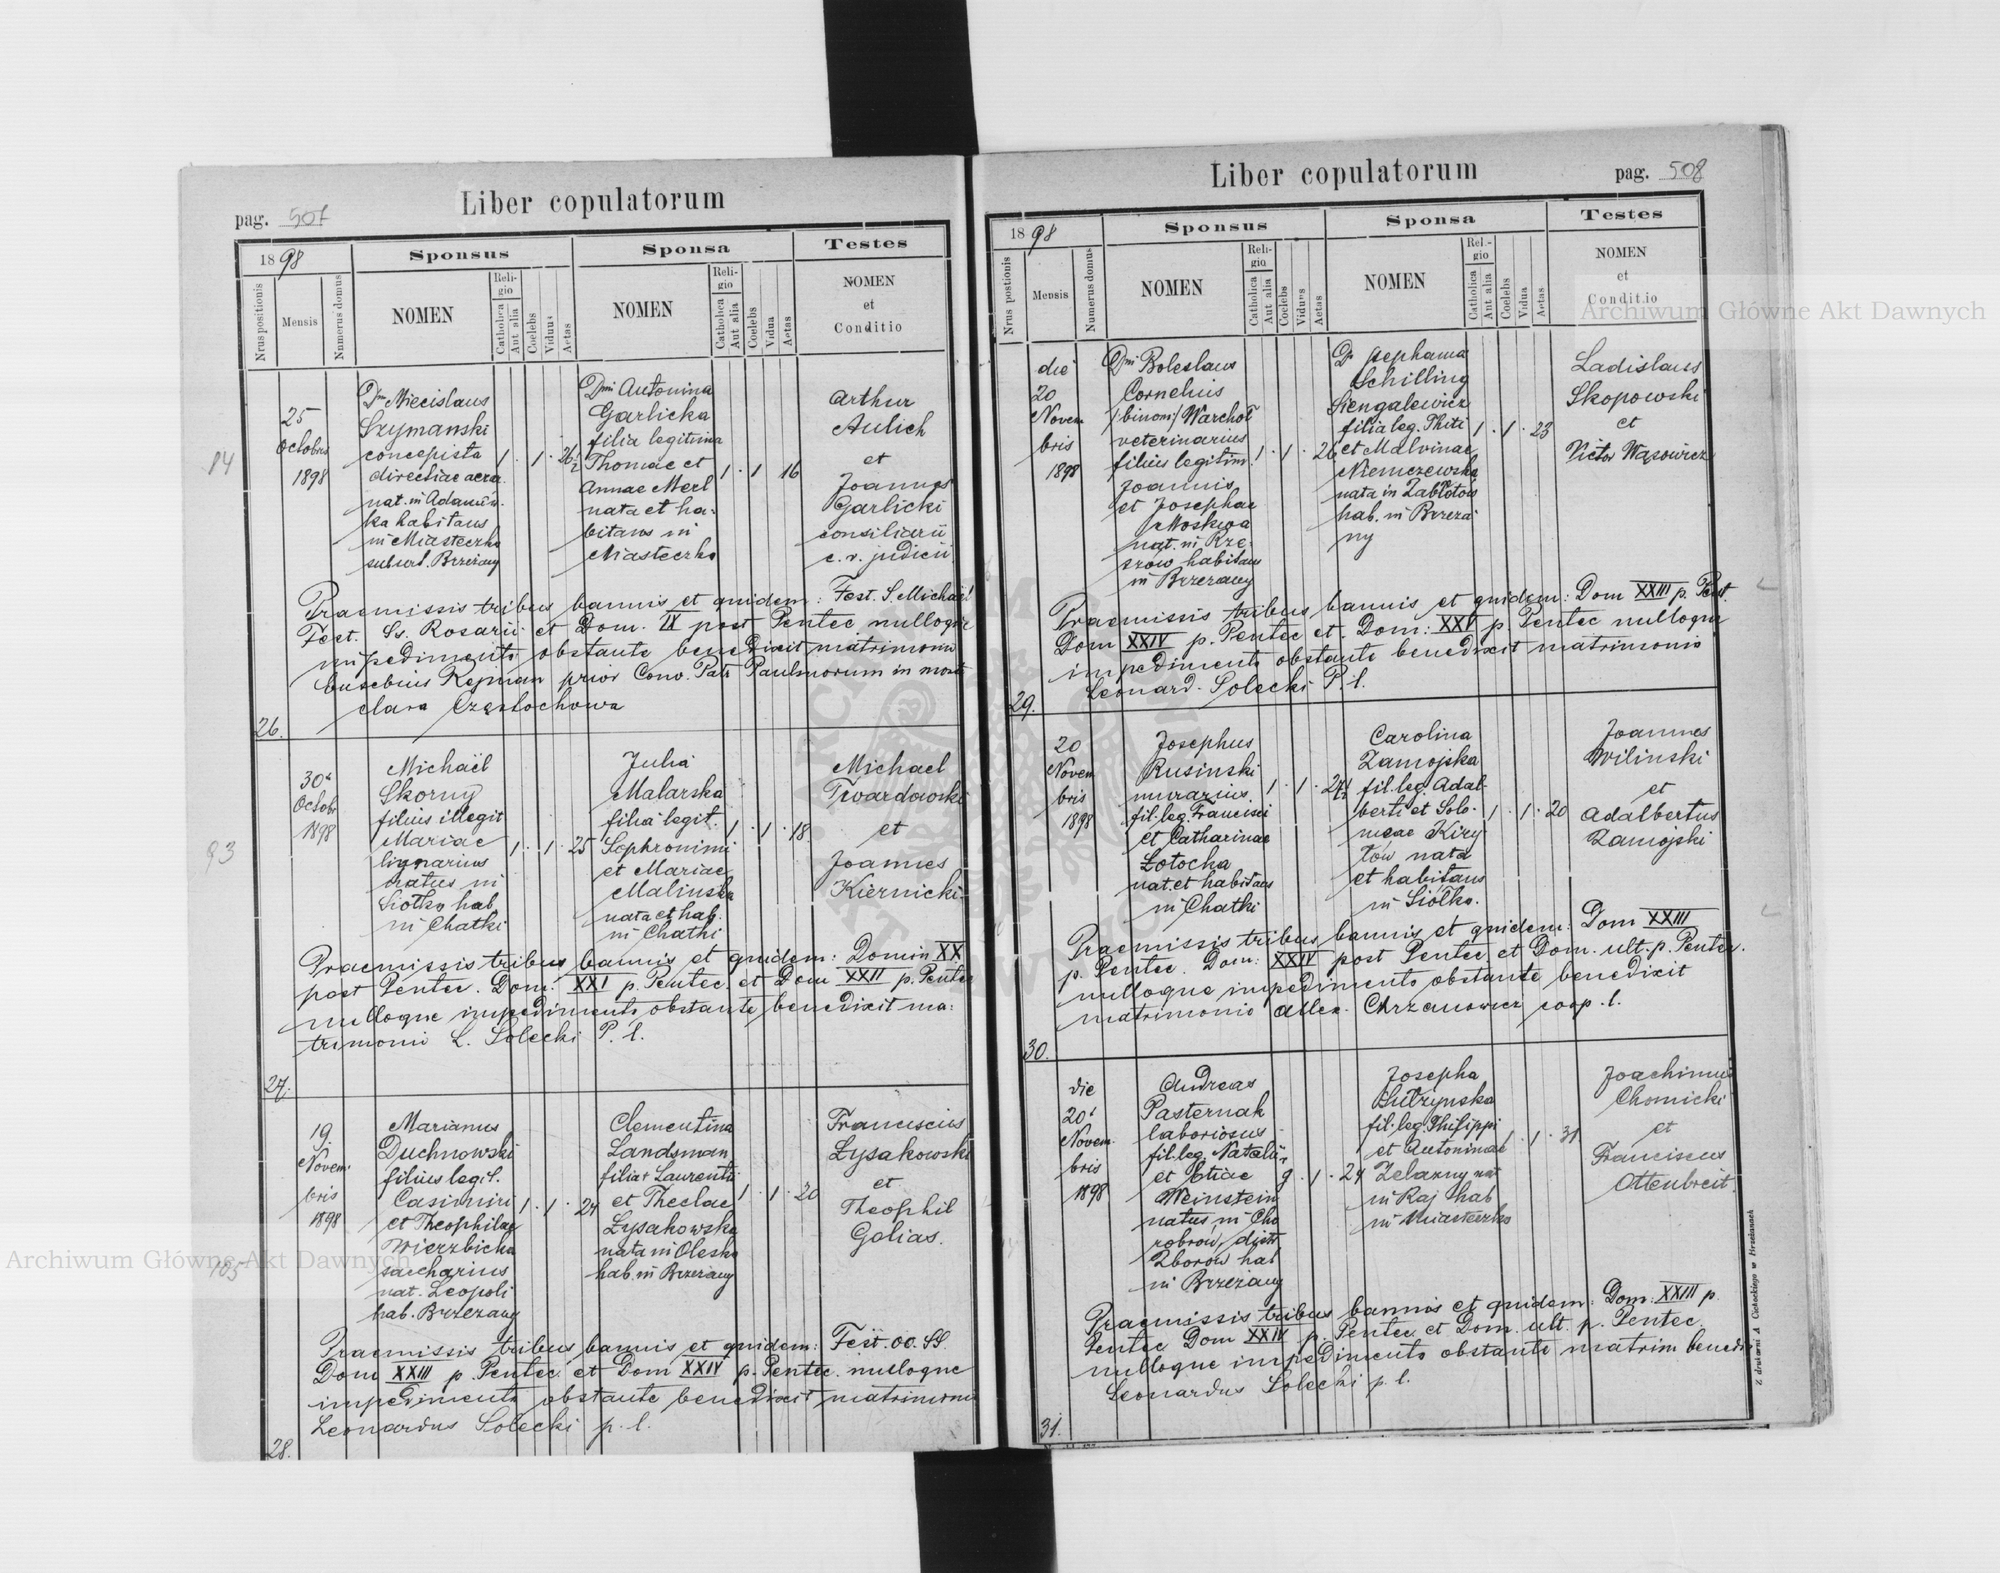 Liber copulatorum
pag. 507
1898
Sponsus
Sponsa
Testes
Nrus positionis
Mensis
Numerus domus
NOMEN
Religio
Catholica
Aut alia
Coelebs
Viduus
Aetas
NOMEN
Religio
Catholica
Aut alia
Coelebs
Vidua
Aetas
NOMEN
et
Conditio
14
25
Octobris
1898
Dm Miecislaus
Szymanski
concepista
nat. in Adamów-
ka habitans
in Miasteczko
suburb. Brzeżany
1 . 1 . 26½
Dmi Antonina
Garlicka
filia legitima
Thomae et
Annae Merl
nata et ha-
bitans in
Miasteczko
1 . 1 16
Arthur
Aulich
et
Joannes
Garlicki
consiliarii
c. r. judicii
Praemissis tribus bannis et quidem: Fest. S. Michaël
Fest. Ss. Rosarii et Dom. IX post Pentec nulloque
impedimento obstante benedixit matrimonio
Eusebius Rejman prior Conv. Patr Paulinorum in monte
clara Częstochowa
26.
93
30a
Octobr
1898
Michaël
Skorny
filius illegit
Mariae
lignarius
natus in
Siolko hab
in Chatki
1 . 1 . 25
Julia
Malarska
filia legit.
Sophronimi
et Mariae
Malinska
nata et hab.
in Chatki
1 . 1 . 18
Michael
Twardowski
et
Joannes
Kiernicki
Praemissis tribus bannis et quidem: Domin XX
post Pentec. Dom: XXI p. Pentec. et Dom XXII p. Pentec
nulloque impedimento obstante benedixit ma-
trimonii L. Solecki P. l.
27.
105
19
Novem
bris
1898
Marianus
Duchnowski
filius legit.
Casimiri
et Theophilae
Wierzbicka
saccharius
nat. Leopoli
hab. Brzezany
1 . 1 . 24
Clementina
Landsman
filia Laurentii
et Theclae
Łysakowska
nata in Olesko
hab. in Brzezany
1 . 1 . 20
Franciscus
Łysakowski
et
Theophil
Golias.
Praemissis tribus bannis et quidem: Fest. OO. SS.
Dom XXIII p. Pentec. et Dom XXIV p. Pentec. nulloque
impedimento obstante benedixit matrimonio
Leonardus Solecki p. l.
28.
Liber copulatorum
pag. 508
1898
Sponsus
Sponsa
Testes
Nrus postionis
Mensis
Numerus domus
NOMEN
Religio
Catholica
Aut alia
Coelebs
Viduus
Aetas
NOMEN
Religio
Catholica
Aut alia
Coelebs
Vidua
Aetas
NOMEN
et
Conditio
die
20
Novem
bris
1898
Dmi Boleslaus
Cornelius
/:binom:/ Warchoł
veterinarius
filius legitim.
Joannis
et Josephae
Moskwa
nat. in Rze-
szów habitans
in Brzezany
1 . 1 . 26
Schilling
filia leg. Titi
et Malvinae
Niemczewska
nata in Zabłotow
hab. in Brzeza
ny
1 . 1 . 23
Ladislaus
Skopowski
et
Victor Wąsowicz
Praemissis tribus bannis et quidem: Dom XXIII p. Pent.
Dom XXIV p. Pentec et Dom: XXV p. Pentec nulloque
impedimento obstante benedixit matrimonio
Leonard. Solecki P. l.
29.
20
Novem
bris
1898
Josephus
Rusinski
murarius
fil. leg. Francisci
et Catharinae
Łotocka
nat. et habitans
in Chatki
1 . 1 . 27½
Carolina
Zamojska
fil. leg. Adal-
berti et Solo-
meae Kiry-
tów nata
et habitans
in Siólko.
1 . 1 . 20
Joannes
Wilinski
et
Adalbertus
Zamojski
Praemissis tribus bannis et quidem: Dom XXIII
p. Pentec. Dom: XXIV post Pentec. et Dom. ult. p. Pentec.
nulloque impedimento obstante benedixit
matrimonio Allex. Chrzanowicz coop. l.
30.
die
20a
Novem
bris
1898
Andreas
Pasternak
laboriosus
fil. leg. Natalii
et
Weinstein
natus in Cho
robrów, distr
Zborów hab
in Brzeżany
g . 1 . 24
Josepha
fil. leg. Philippi
et Antoninae
Zelazny nat
in Raj hab
in Miasteczko
1 . 31
Joachimus
Chomicki
et
Franciscus
Ottenbreit.
Praemissis tribus bannis et quidem: Dom: XXIII p.
Pentec Dom XXIV p. Pentec. et Dom. ult. p. Pentec.
nulloque impedimento obstante matrim benedi
Leonardus Solecki p. l.
31.
Z drukarni A Cichockiego w Brzeżanach
Archiwum Główne Akt Dawnych
Archiwum Główne Akt Dawnych